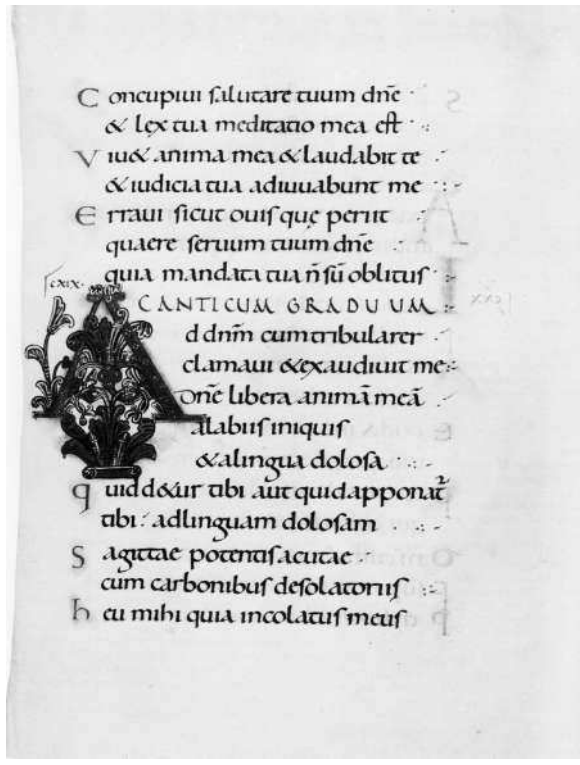 Concupiui salutare tuum dn̄e
& lex tua meditatio mea est
Viu& anima mea & laudabit te
& iudicia tua adiuuabunt me
Erraui sicut ouis quę periit
quaere seruum tuum dn̄e
quia mandata tua n̄ sū oblitus
cxix
CANTICUM GRADUUM
Ad dn̄m cum tribularer
clamaui & exaudiuit me
Dn̄e libera animā meā
a labiis iniquis
& a lingua dolosa
quid d&ur tibi aut quid apponat᷑
tibi ad linguam dolosam
Sagittae potentis acutae
cum carbonibus desolatoriis
heu mihi quia incolatus meus